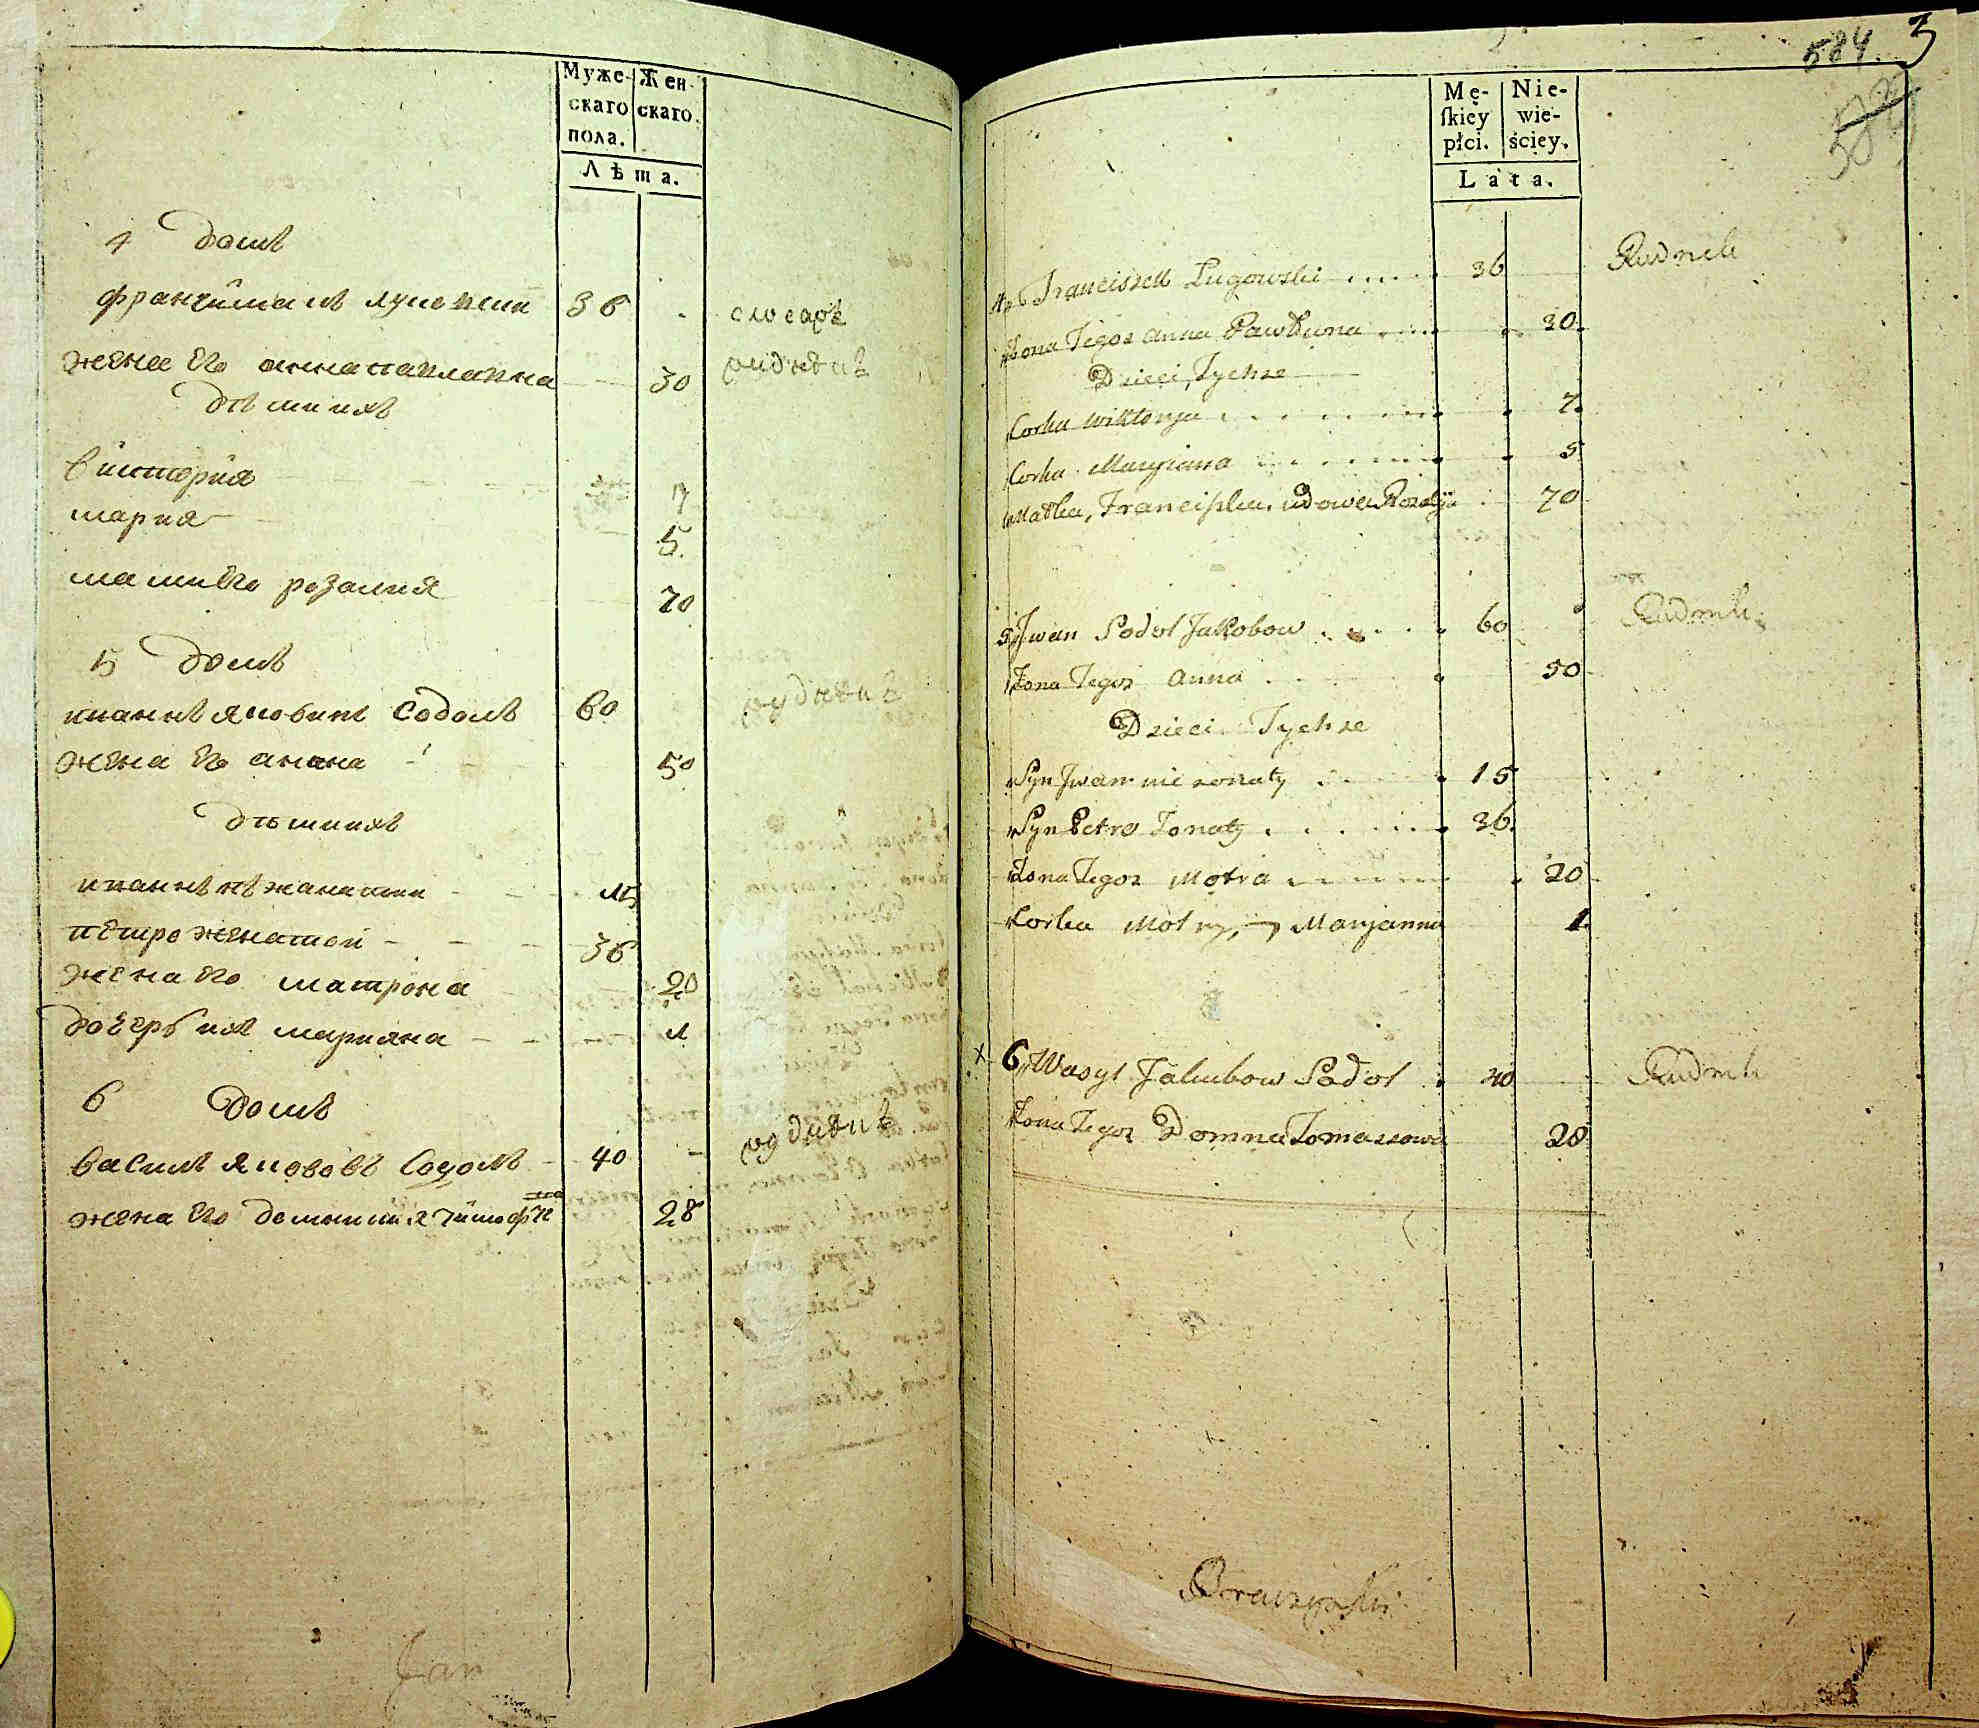 Муже- Жен-
скаго скаго.
пола.
Лѣта.
4 домъ
францишекъ луговски 36 . слюсарь
жена Его анна павлавна 30 рудникъ
дѣти ихъ
виктория 7
мария 5.
мать Его розалия 70
5 домъ
иванъ яковивъ содолъ 60 рудникъ
жена Его анна 50
дѣти ихъ
иванъ нежанатии 15
петро женатои 36
жена Его матрона 20
дочерь ихъ марияна 1
6 домъ
василь яцововъ содолъ 40 - рудникъ
жена Его домникия тимофѣ 28
Jan
584. 3
Mę- Nie-
ſkiey wie-
płci. ściey.
Lata.
4 Franciszek Lugowski 36 Rudnik
Żona Tegoż Anna Pawłuwna 30.
Dzieci Tychże
Corka Wiktorya 7.
Corka Maryiana 5
Matka, Franciszka, udowa Rozalija 70
5 Jwan Sodol Jakobow 60 Rudnik
Żona Tegoż Anna 50
Dzieci Tychże
Syn Jwan nie zonaty 15
Syn Petro Żonaty 36.
Żona Tegoż Motra 20
Corka Motry, Maryanna 1
x 6 Wasyl Jakubow Sadol 40 Rudnik
Żona Tegoż Domna Tomaszowa 28